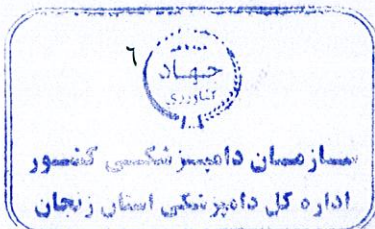 ۶
جهاد
کشاورزی
سازمان دامپزشکی کشور
اداره کل دامپزشکی استان زنجان